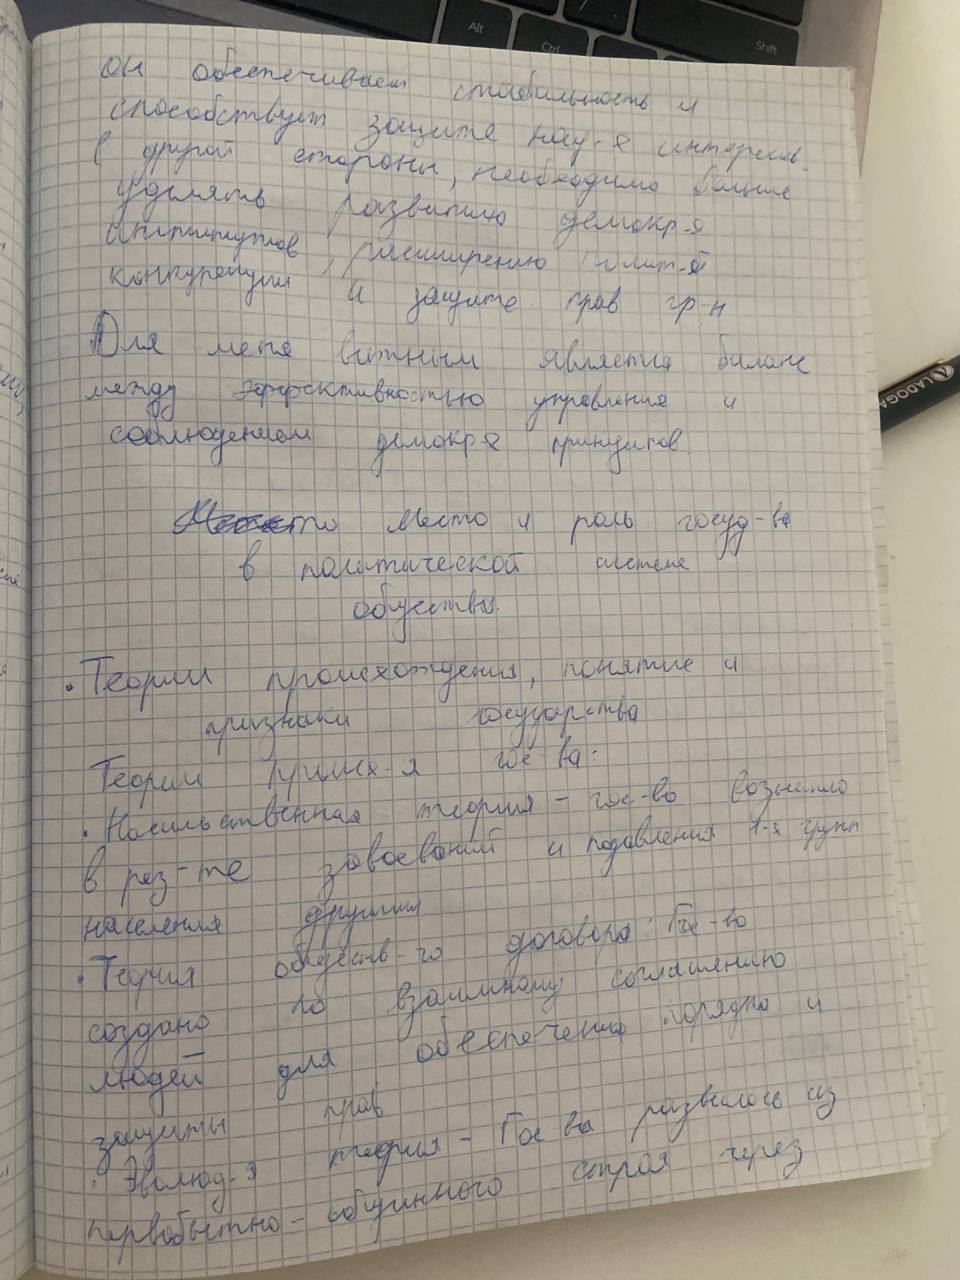 Alt
Ctrl
Shift
он обеспечивает стабильность и
способствует защите нац-х интересов.
С другой стороны, необходимо больше
уделять развитию демокр-х
институтов, расширению полит-й
конкуренции и защите прав гр-н
Для меня важным является баланс
между эффективностью управления и
соблюдением демокр-х принципов.
Место и роль госуд-ва
в политической системе
общества.
• Теории происхождения, понятие и
признаки государства
Теории происх-я гос-ва:
• Насильственная теория – гос-во возникло
в рез-те завоеваний и подавления 1-х групп
населения другими
• Теория обществ-го договора: Гос-во
создано по взаимному соглашению
людей для обеспечения порядка и
защиты прав
• Эволюц-я теория – Гос-во развилось из
первобытно-общинного строя через
LADOGA